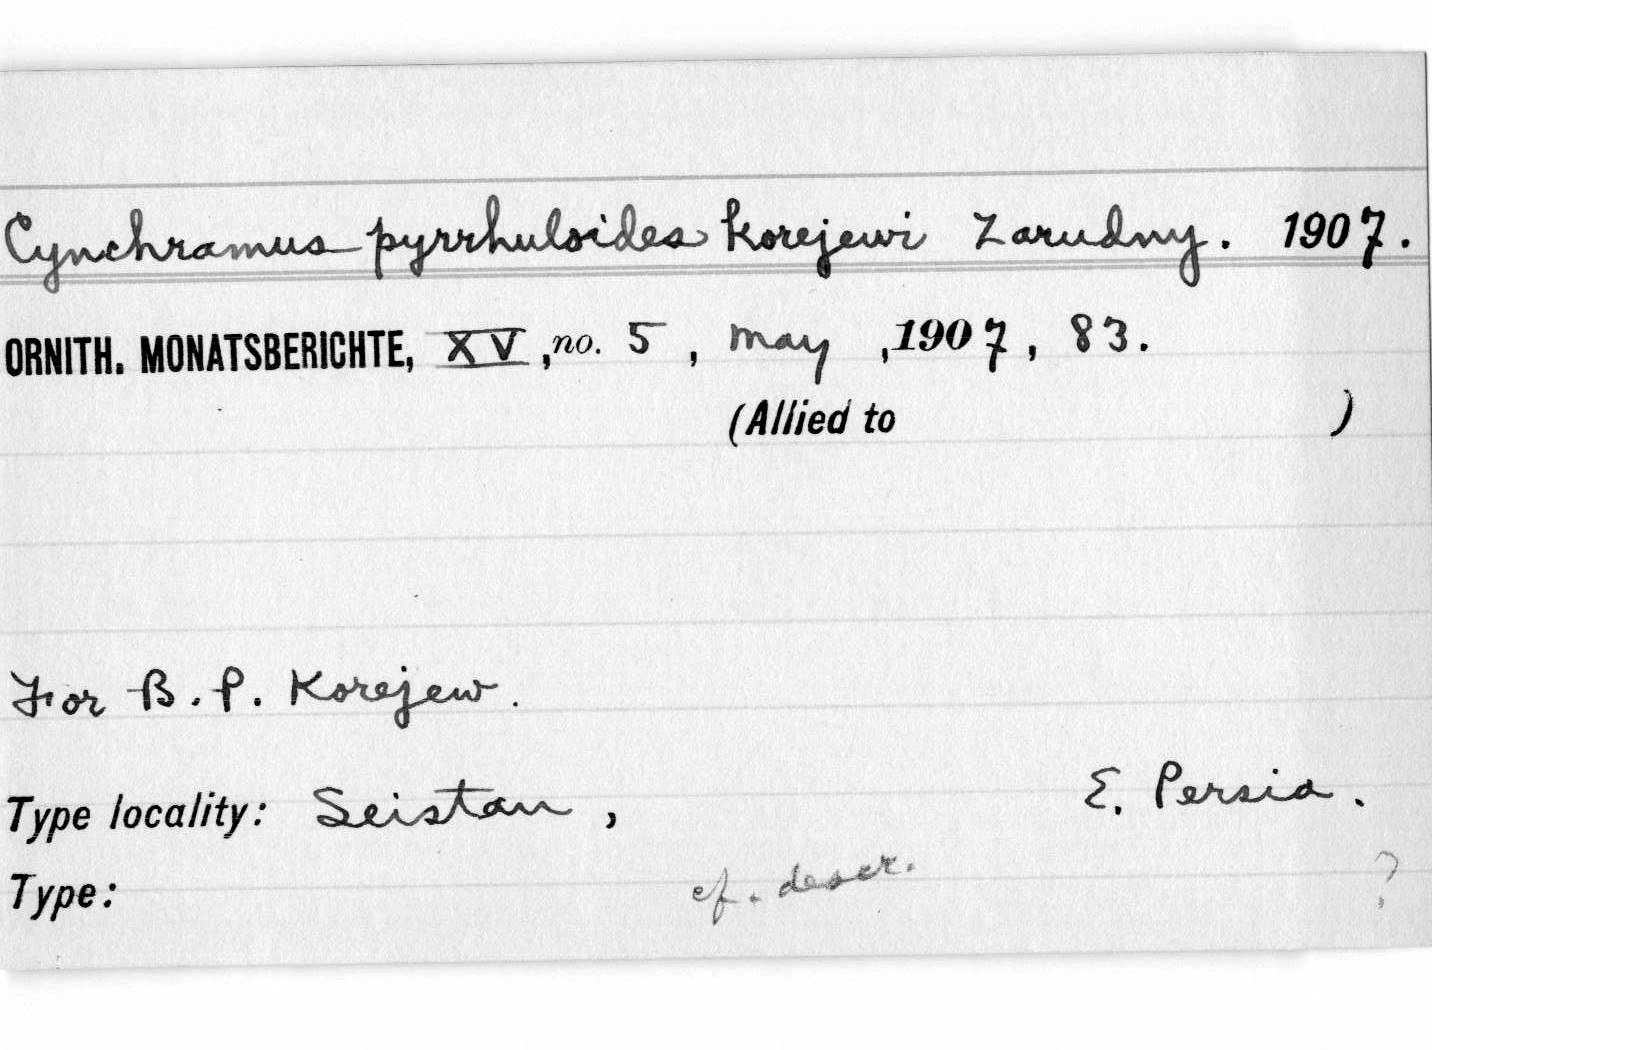 Cynchramus pyrrhuloides korejewi Zarudny. 1907.
ORNITH. MONATSBERICHTE, XV, no. 5, May, 1907, 83.
(Allied to )
For B. P. Korejew.
Type locality: Seistan, E. Persia.
Type: cf. descr. ?